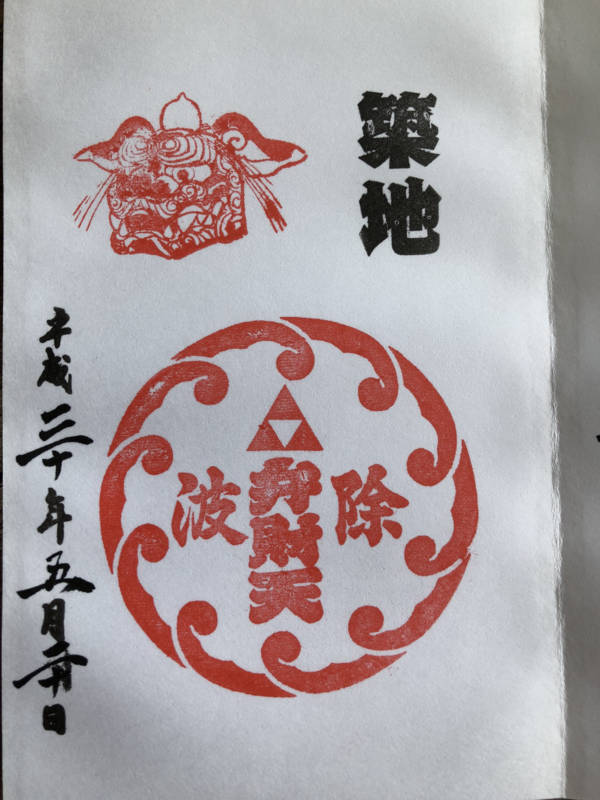 築地
除波
弁財天
平成三十年五月二十日